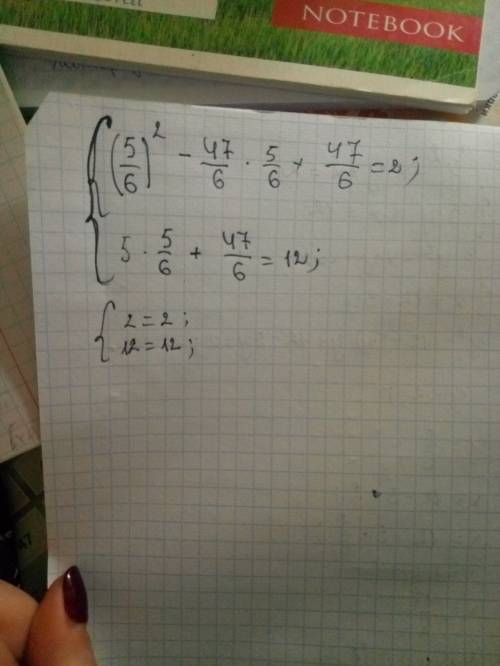 NOTEBOOK
(5/6)² - 47/6 · 5/6 + 47/6 = 2;
5 · 5/6 + 47/6 = 12;
2 = 2;
12 = 12;